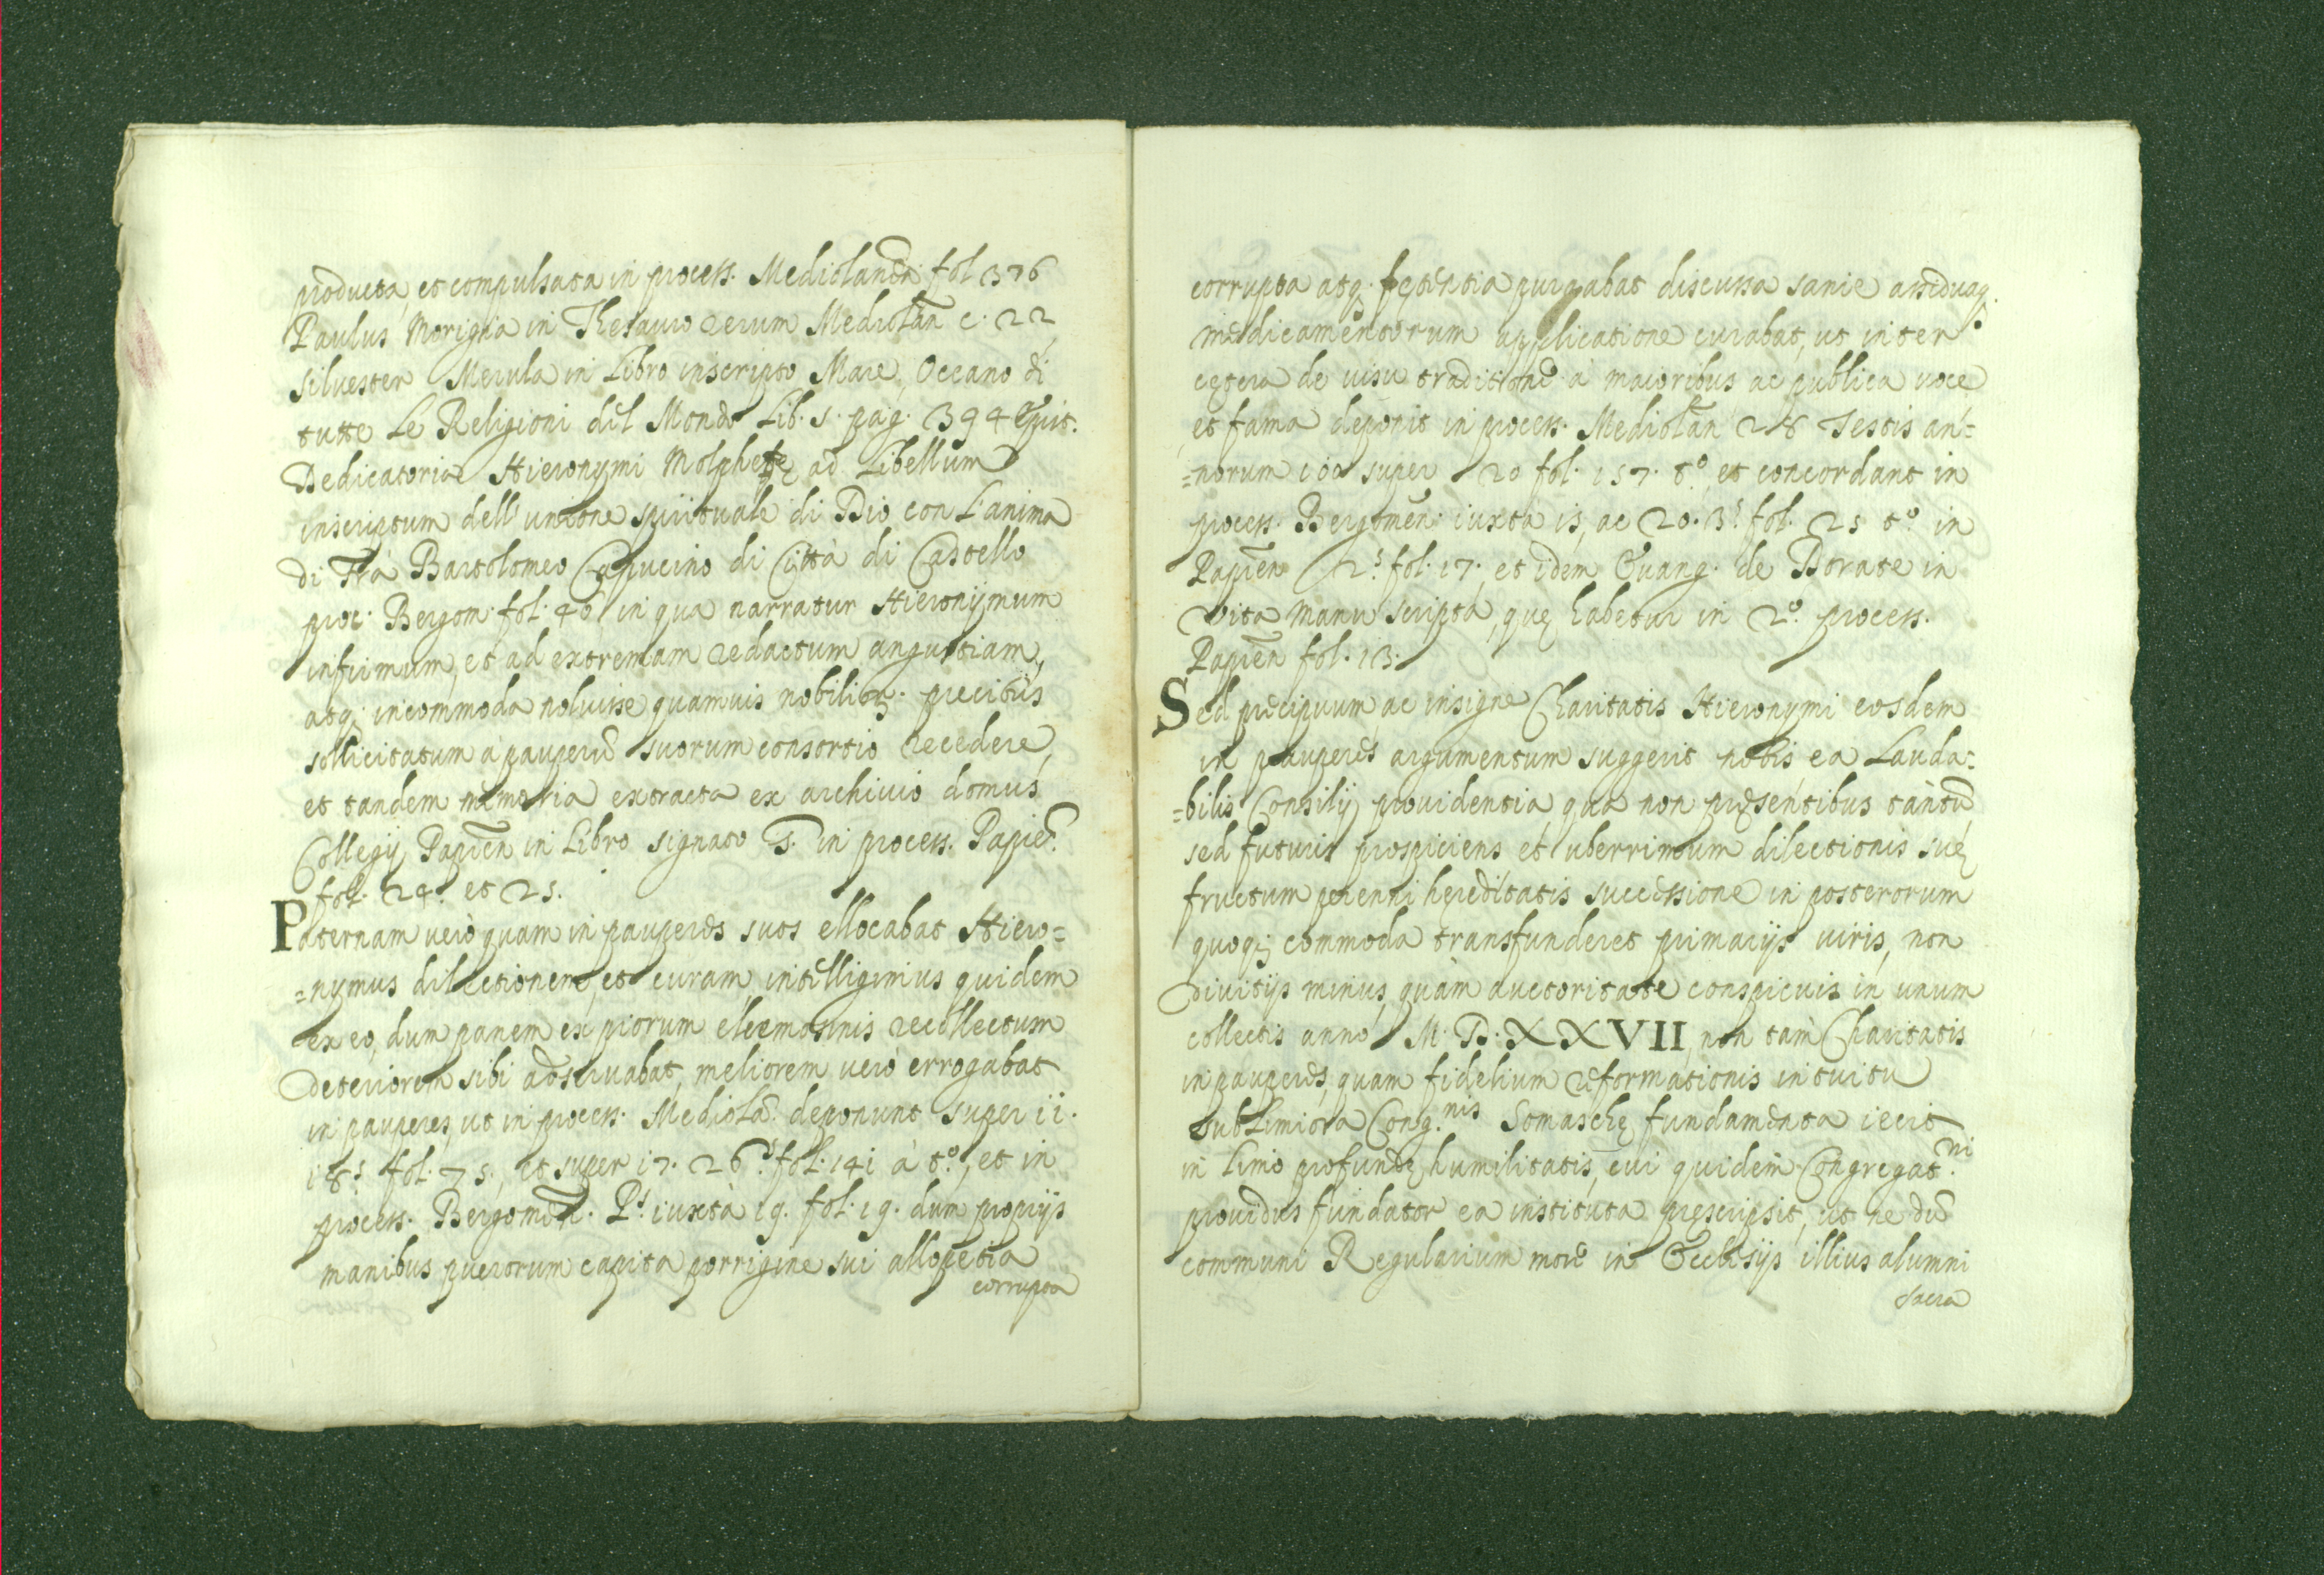 producta, et compulsata in process. Mediolanen. fol 376
Paulus Morigia in Thesauro rerum Mediolan̄ c. 22
Silvester Merula in Libro inscripto Mare, Oceano di
tutte Le Religioni del Mondo Lib. 5. pag. 394 Epist.
Dedicatoria Hieronymi Molphette ad Libellum
inscriptum dell'unione spirituale di Dio con L'anima
di Frà Bartolomeo Capucino di Città di Castello
proc. Bergom. fol. 46 in qua narratur Hieronymum
infirmum, et ad extremam redactum angustiam,
atq; incommoda noluisse quamvis nobilium precibus
sollicitatum à pauperū suorum consortio recedere,
et tandem memoria extracta ex archivio domus
Collegij Papien̄ in Libro signato S. in process. Papien.
fol. 24. et 25.
Paternam verò quam in pauperes suos ellocabat Hiero=
=nymus dilectionem, et curam, intelligimus quidem
ex eo, dum panem ex piorum eleemosinis recollectum
deteriorem sibi adservabat, meliorem verò errogabat
in pauperes, ut in process. Mediolā. deponunt super 11.
18.s fol. 75., et super 17. 26.s fol. 141 à t.º, et in
process. Bergomen̄. P.s iuxtà 19. fol. 19. dum proprijs
manibus puerorum capita porrigine sui allopetia
corrupta
corrupta atq. pestilentia purgabat discussa sanie assiduaq.
medicamentorum applicatione curabat, ut inter
cętera de visu traditione à maioribus ac publica voce
et fama deponit in process. Mediolan̄ 28 Testis an=
=norum 100 super 20 fol. 157. t.º, et concordant in
process. Bergomen̄. iuxta 15, ac 20. 3.s fol. 25 t.º in
Papien̄ 2.s fol. 17. et idem Evang. de Dorate in
Vita manu scripta, quę habetur in 2.º process.
Papien̄ fol. 13.
Sed precipuum ac insigne Charitatis Hieronymi eosdem
in pauperes argumentum suggerit nobis ea Lauda=
=bilis Consilij providentia qua non pręsentibus tantū
sed futuris prospiciens et uberrimum dilectionis suę
fructum perenni hęreditatis successione in posterorum
quoq; commoda transfunderet primarijs viris, non
divitijs minus, quàm auctoritate conspicuis in unum
collectis anno M. D. XXVII, non tam Charitatis
in pauperes, quam fidelium reformationis intuitu
sublimiora Cong.nis Somaschę fundamenta iecit
in Limo profundę humilitatis, cui quidem Congregat.ni
providus fundator ea instituta pręscripsit, ut ne dū
communi Regularium more in Ecclesijs illius alumni
sacra